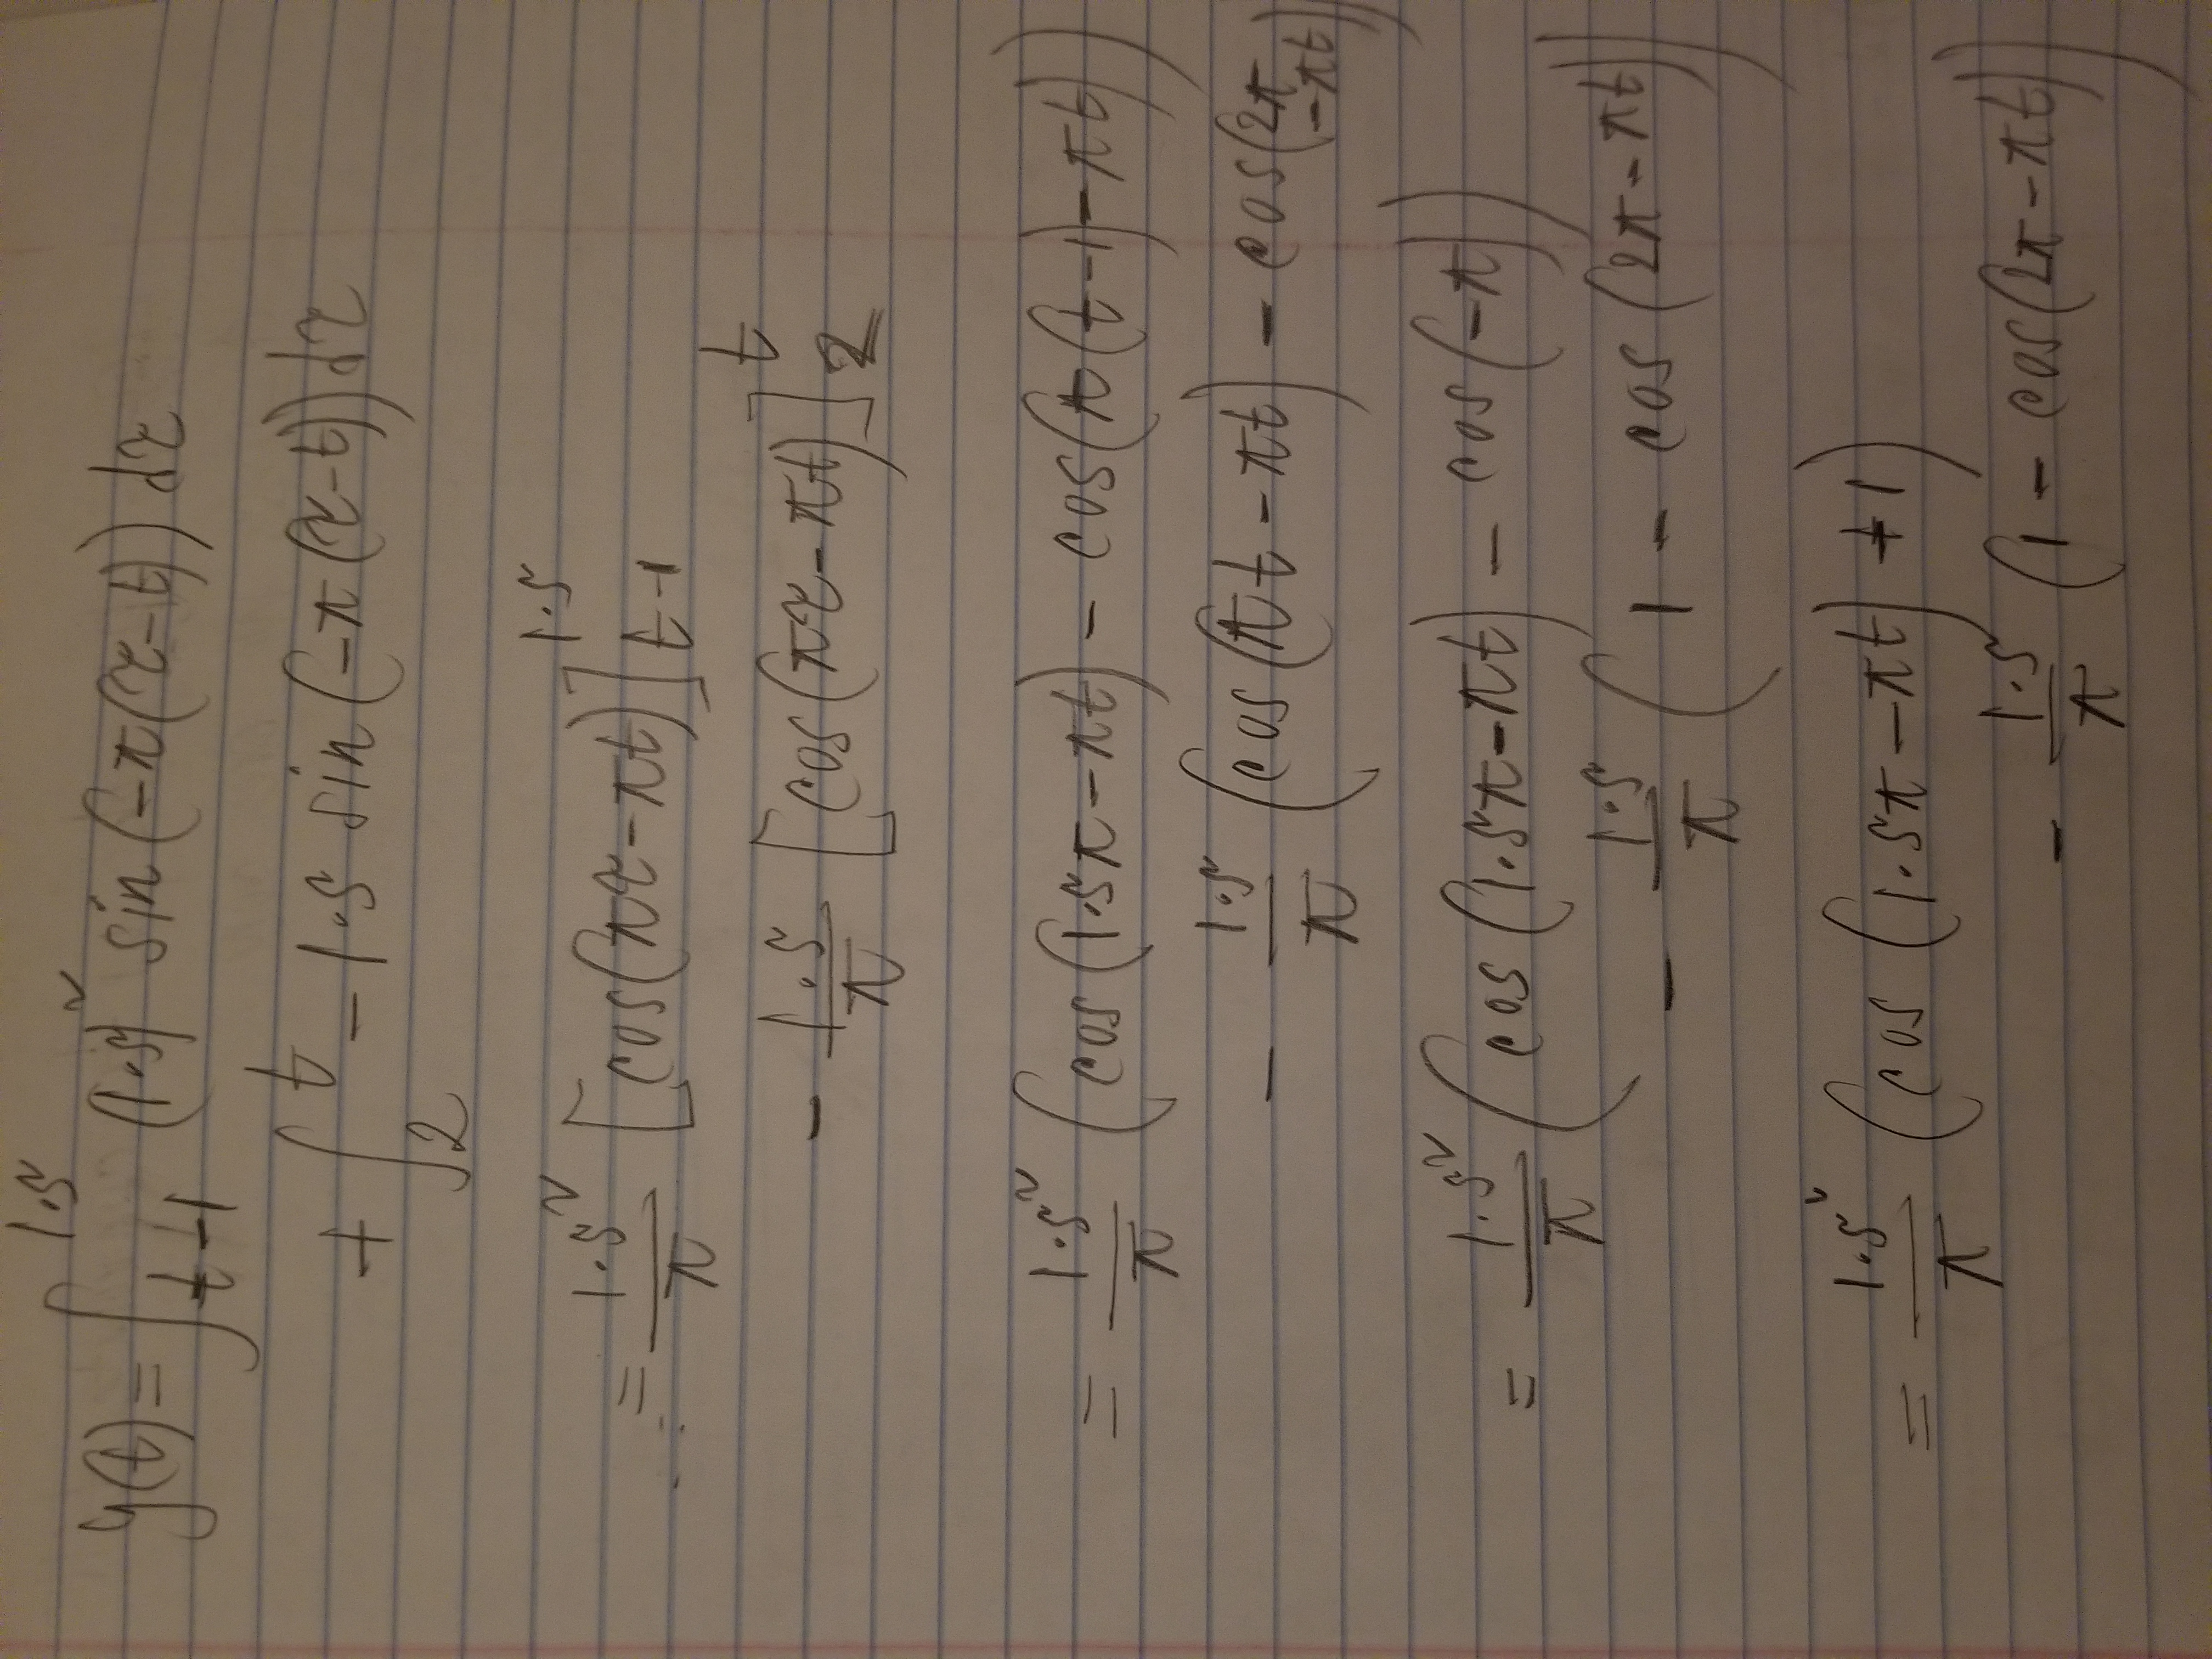 y(t) = ∫_{t-1}^{1.5} (1.5)² sin(-π(τ-t)) dτ
+ ∫_2^t -1.5 sin(-π(τ-t)) dτ
= 1.5²/π [cos(πτ-πt)]_{t-1}^{1.5}
- 1.5/π [cos(πτ-πt)]_2^t
= 1.5²/π (cos(1.5π-πt) - cos(π(t-1)-πt))
- 1.5/π (cos(πt-πt) - cos(2π-πt))
= 1.5²/π (cos(1.5π-πt) - cos(-π))
- 1.5/π (1 - cos(2π-πt))
= 1.5²/π (cos(1.5π-πt) +1)
- 1.5/π (1 - cos(2π-πt))